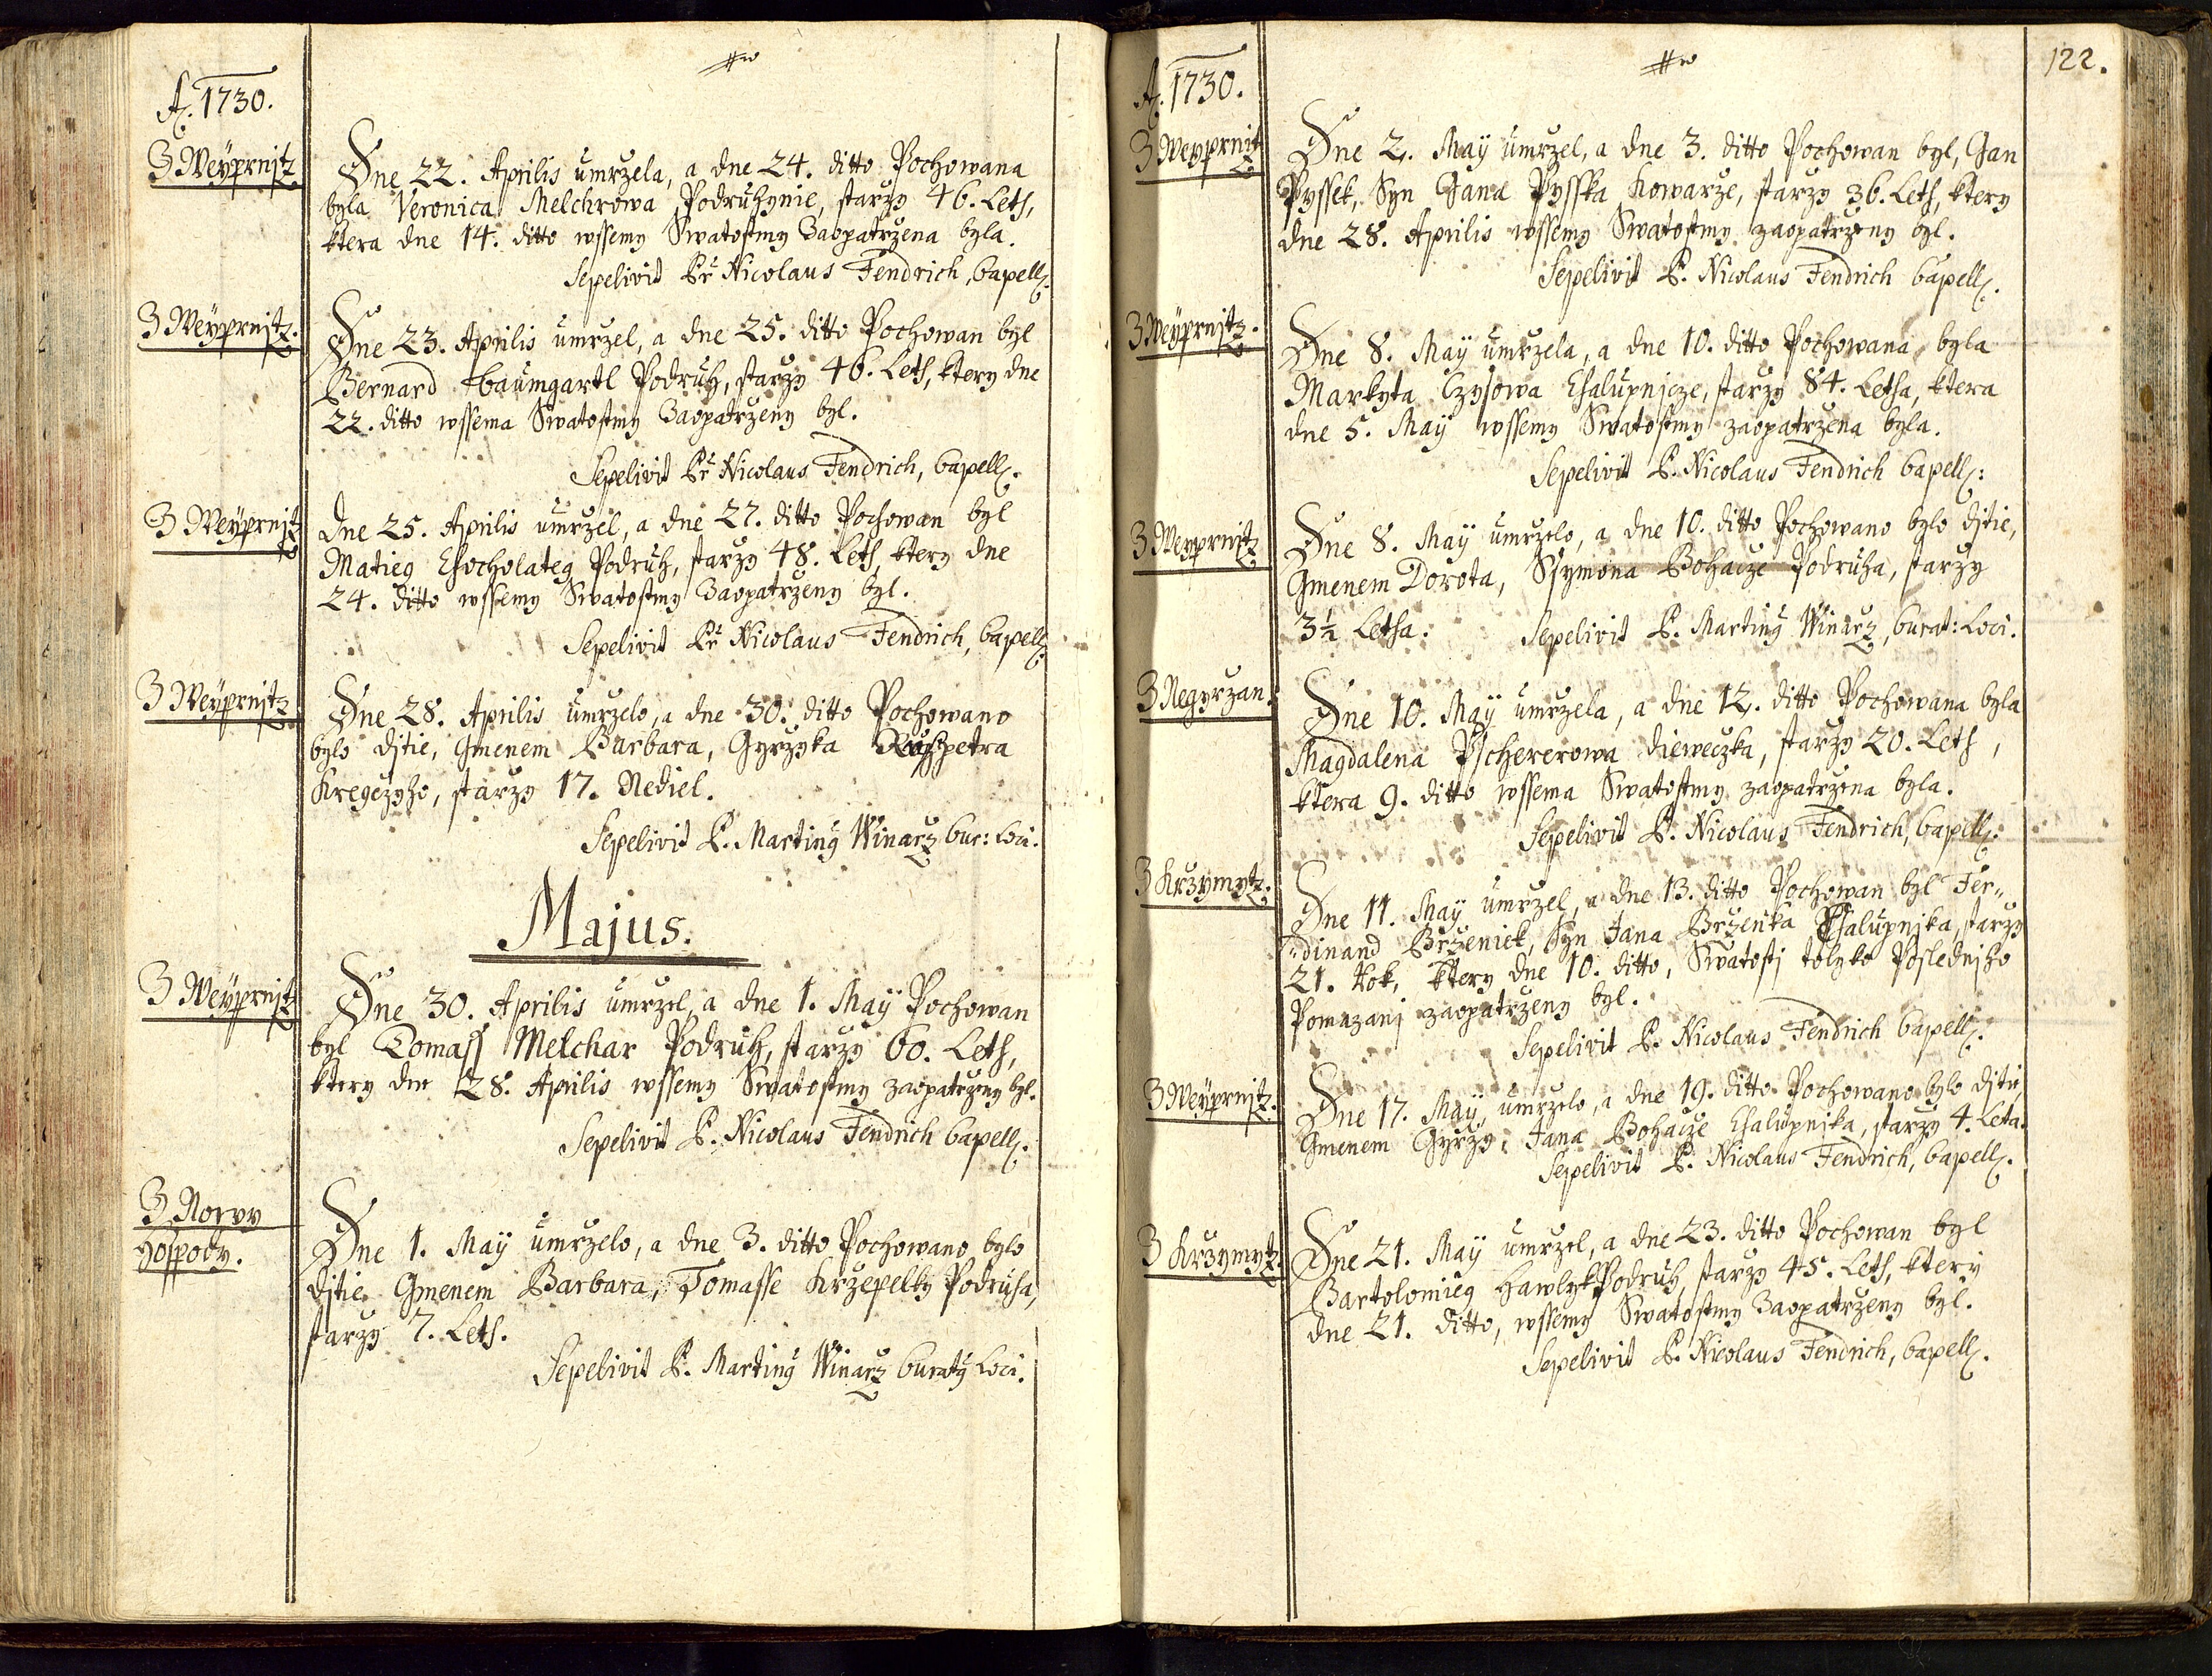 A. 1730.
Z Weyprnitz
Dne 22. Aprilis umrzela, a dne 24. ditto Pochowana
byla Veronica Melchrowa Podruhynie, starzy 46. Leth,
ktera dne 14. ditto wssemy Swatostmy Zaopatrzena byla.
Sepelivit Pr Nicolaus Fendrich, Capell.
Z Weyprnitz.
Dne 23. Aprilis umrzel, a dne 25. ditto Pochowan byl
Bernard Baumgartl Podruh, starzy 46. Leth, ktery dne
22. ditto wssema Swatostmy Zaopatrzeny byl.
Sepelivit Pr Nicolaus Fendrich, Capell.
Z Weyprnitz
Dne 25. Aprilis umrzel, a dne 27. ditto Pochowan byl
Matieg Chocholateg Podruh, starzy 48. Leth, ktery dne
24. ditto wssemy Swatostmy Zaopatrzeny byl.
Sepelivit Pr Nicolaus Fendrich, Capell.
Z Weyprnitz
Dne 28. Aprilis umrzelo, a dne 30. ditto Pochowano
bylo djtie, Gmenem Barbara, Gyrzyka
Kregczyho, starzy 17. Nediel.
Sepelivit P. Martinus Winarz Cur: Loci.
Majus.
Z Weyprnitz
Dne 30. Aprilis umrzel, a dne 1. May Pochowan
byl Tomass Melchar Podruh, starzy 60. Leth,
ktery dne 28. Aprilis wssemy Swatostmy zaopatrzeny byl.
Sepelivit P. Nicolaus Fendrich Capell.
Z Nowy
Hospody.
Dne 1. May umrzelo, a dne 3. ditto Pochowano bylo
djtie Gmenem Barbara, Tomasse Krzepelky Podruha,
starzy 7. Leth.
Sepelivit P. Martinus Winarz Curatus Loci.
122.
A. 1730.
Z Weyprnitz
Dne 2. May umrzel, a dne 3. ditto Pochowan byl, Gan
Pyssek, Syn Gana Pysska Kowarze, starzy 36. Leth, ktery
dne 28. Aprilis wssemy Swatostmy zaopatrzeny byl.
Sepelivit P. Nicolaus Fendrich Capell.
Z Weyprnitz.
Dne 8. May umrzela, a dne 10. ditto Pochowana byla
Markyta Czysowa Chalupnjcze, starzy 84. Letha, ktera
dne 5. May wssemy Swatostmy zaopatrzena byla.
Sepelivit P. Nicolaus Fendrich Capell:
Z Weyprnitz
Dne 8. May umrzelo, a dne 10. ditto Pochowano bylo djtie,
Gmenem Dorota, Ssymona Bohacze Podruha, starzy
3½ Letha. Sepelivit P. Martinus Winarz, Curat: Loci.
Z Negyrzan.
Dne 10. May umrzela, a dne 12. ditto Pochowana byla
Magdalena Pschererowa dieweczka, starzy 20. Leth,
ktera 9. ditto wssema Swatostmy zaopatrzena byla.
Sepelivit P. Nicolaus Fendrich, Capell.
Z Krzymytz.
Dne 11. May umrzel, a dne 13. ditto Pochowan byl Fer„
„dinand Brzeniek, Syn Jana Brzenka Chalupnjka, starzy
21. Rok, ktery dne 10. ditto, Swatosti tolyko Poslednjho
Pomazanj zaopatrzeny byl.
Sepelivit P. Nicolaus Fendrich Capell.
Z Weyprnitz.
Dne 17. May umrzelo, a dne 19. ditto Pochowano bylo djtie
Gmenem Gyrzy, Jana Bohacze Chalupnjka, starzy 4. Leta.
Sepelivit P. Nicolaus Fendrich, Capell.
Z Krzymytz.
Dne 21. May umrzel, a dne 23. ditto Pochowan byl
Bartolomieg Hawlyk Podruh, starzy 45. Leth, ktery
dne 21. ditto, wssemy Swatostmy Zaopatrzeny byl.
Sepelivit P. Nicolaus Fendrich, Capell.